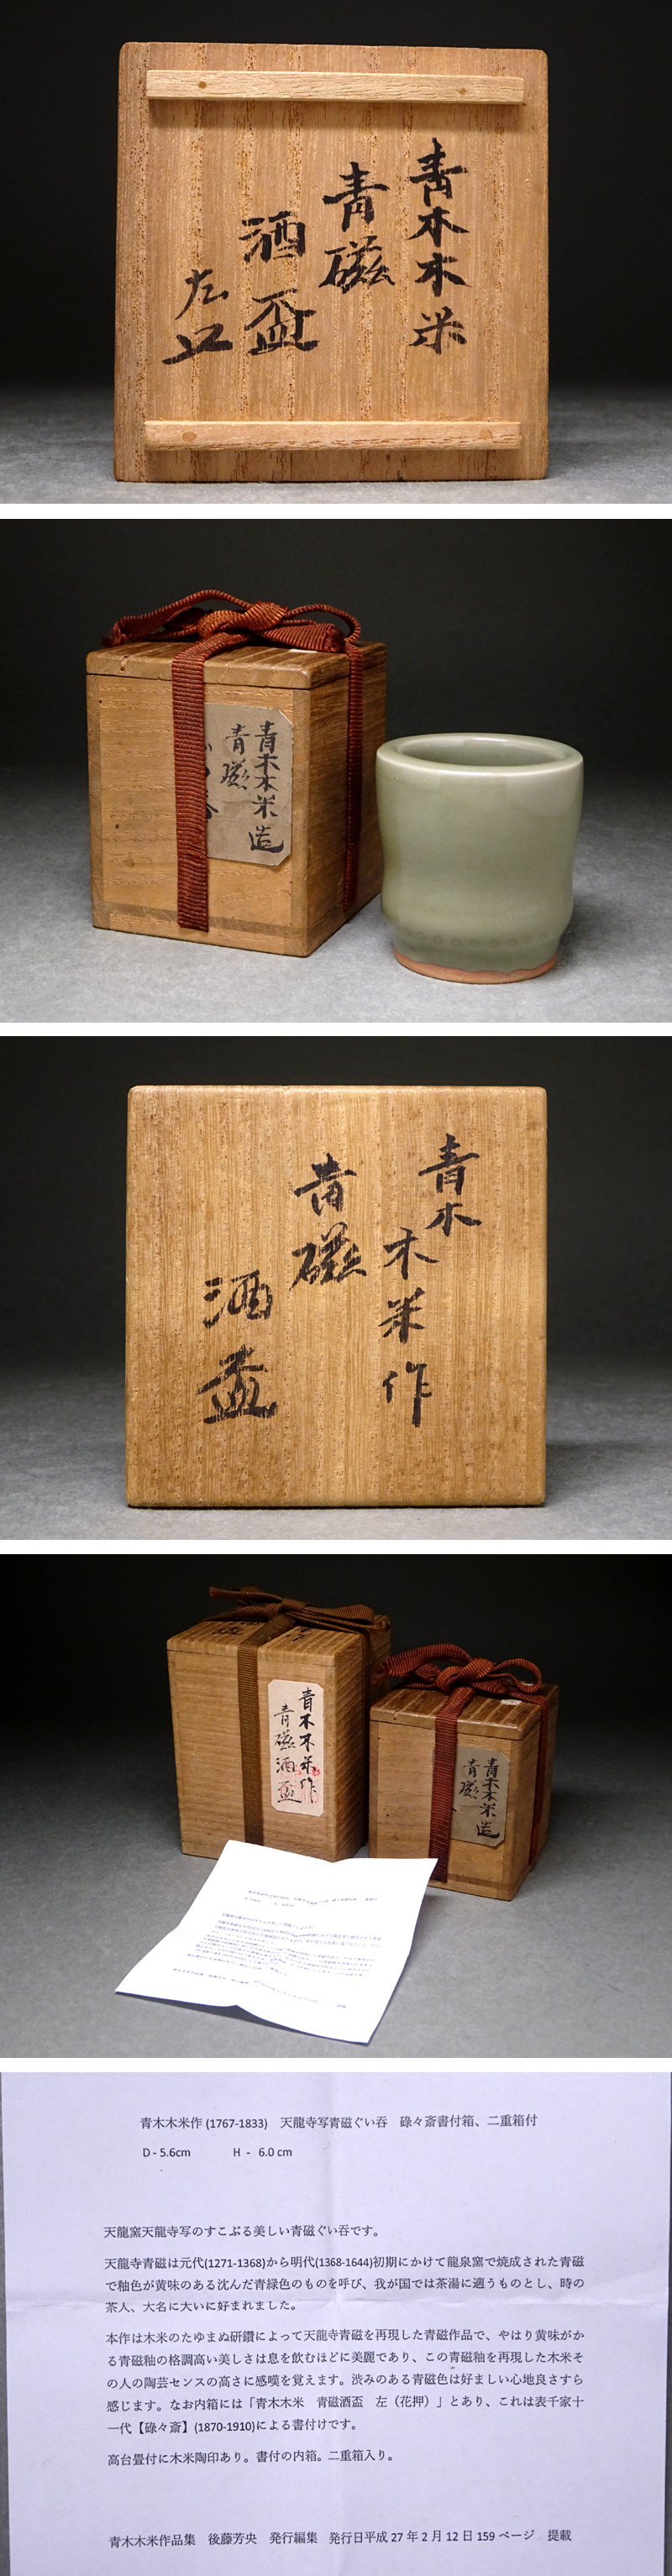 青木木米
青磁
酒盃
左
青木木米造
青磁
青木
木米作
青磁
酒盃
青木木米作
青磁酒盃
青木木米造
青磁
青木木米作 (1767-1833)　天龍寺写青磁ぐい呑　碌々斎書付箱、二重箱付
D - 5.6cm　　H - 6.0 cm
天龍窯天龍寺写のすこぶる美しい青磁ぐい呑です。
天龍寺青磁は元代(1271-1368)から明代(1368-1644)初期にかけて龍泉窯で焼成された青磁
で釉色が黄味のある沈んだ青緑色のものを呼び、我が国では茶湯に適うものとし、時の
茶人、大名に大いに好まれました。
本作は木米のたゆまぬ研鑽によって天龍寺青磁を再現した青磁作品で、やはり黄味がか
る青磁釉の格調高い美しさは息を飲むほどに美麗であり、この青磁釉を再現した木米そ
の人の陶芸センスの高さに感嘆を覚えます。渋みのある青磁色は好ましい心地良さすら
感じます。なお内箱には「青木木米　青磁酒盃　左（花押）」とあり、これは表千家十
一代【碌々斎】(1870-1910)による書付けです。
高台畳付に木米陶印あり。書付の内箱。二重箱入り。
青木木米作品集　後藤芳央　発行編集　発行日平成 27 年 2 月 12 日 159 ページ　提載